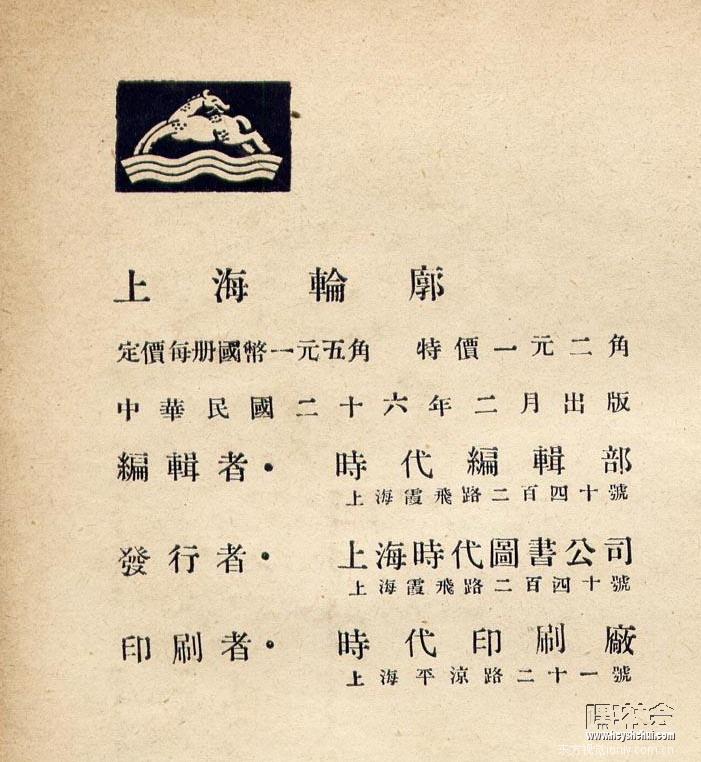 上海輪廓
定價每册國幣一元五角 特價一元二角
中華民國二十六年二月出版
編輯者· 時代編輯部
上海霞飛路二百四十號
發行者· 上海時代圖書公司
上海霞飛路二百四十號
印刷者· 時代印刷廠
上海平涼路二十一號
嘿社会
www.heyshehui.com